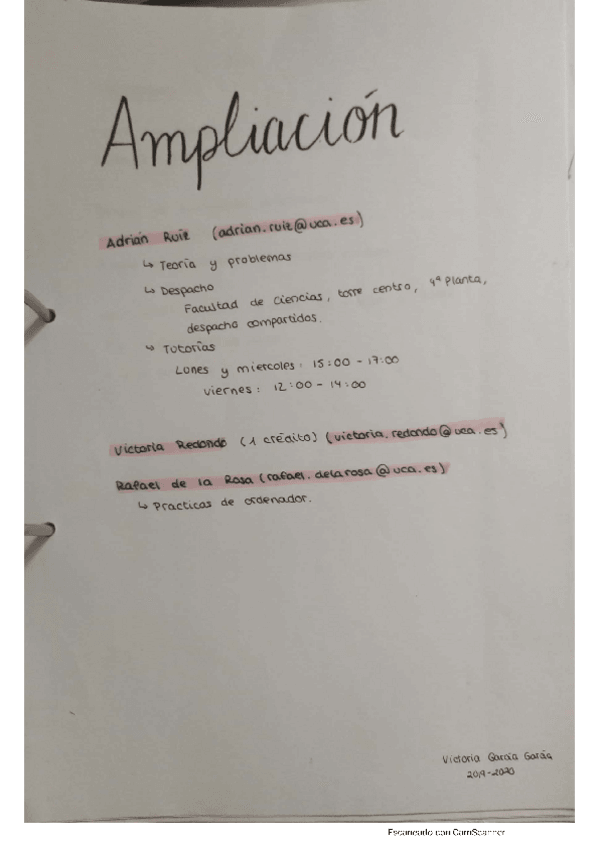 Ampliación
Adrián Ruiz (adrian.ruiz@uca.es)
↳ Teoría y problemas
↳ Despacho
Facultad de ciencias, torre centro, 4ª Planta,
despacho compartidos.
↳ Tutorías
Lunes y miercoles: 15:00 - 17:00
viernes: 12:00 - 14:00
Victoria Redondo (1 crédito) (victoria.redondo@uca.es)
Rafael de la Rosa (rafael.delarosa@uca.es)
↳ Practicas de ordenador.
Victoria García García
2019-2020
Escaneado con CamScanner